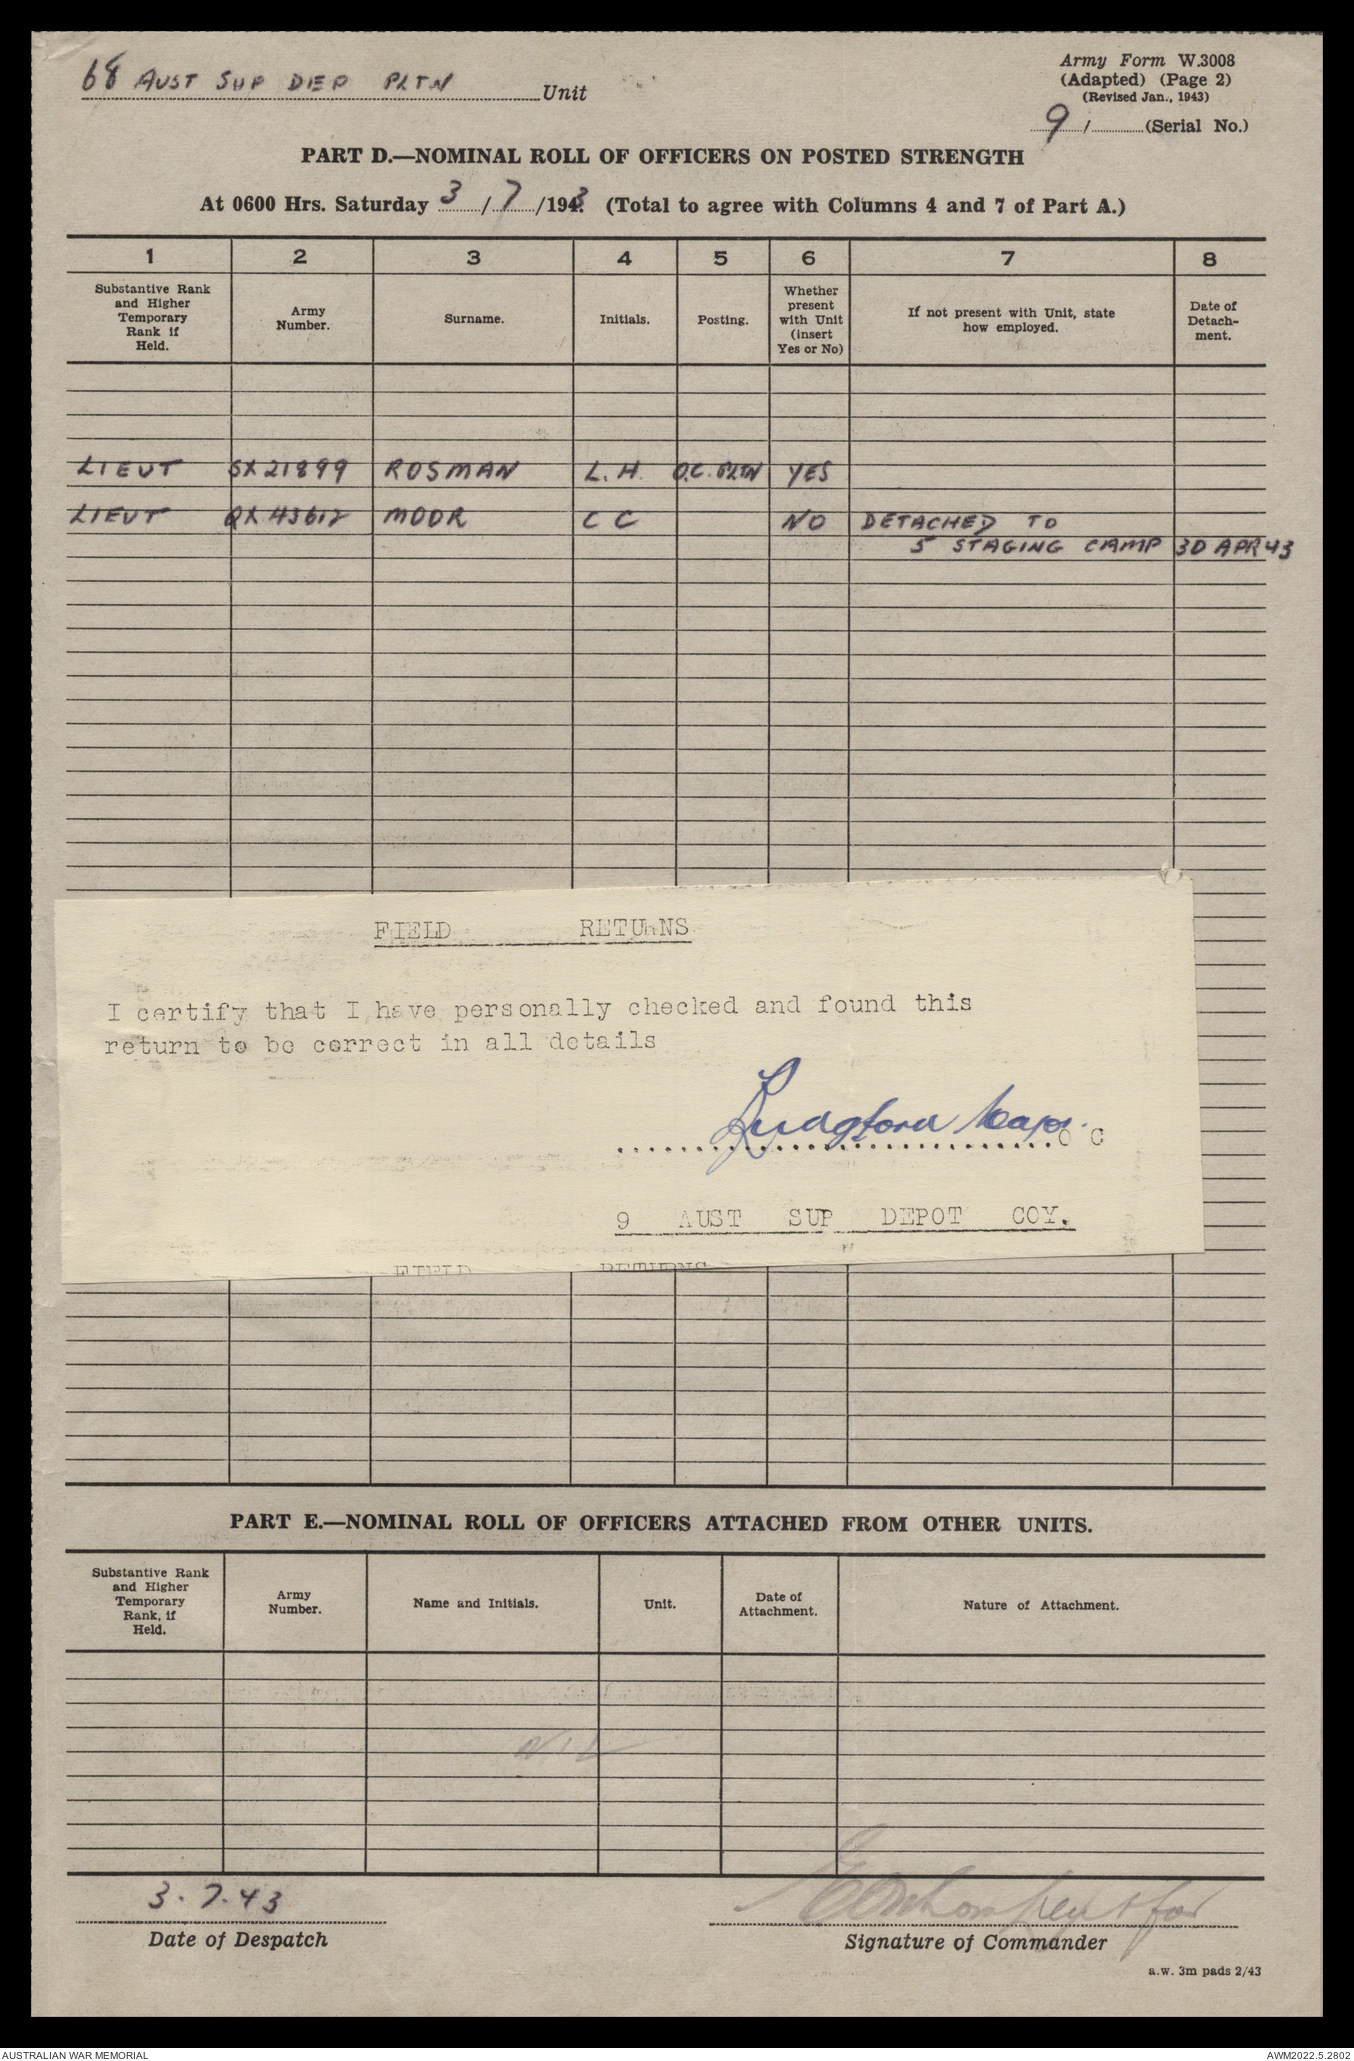 68 AUST SUP DEP PLTN Unit
Army Form W.3008
(Adapted) (Page 2)
(Revised Jan., 1943)
9 / (Serial No.)
PART D.—NOMINAL ROLL OF OFFICERS ON POSTED STRENGTH
At 0600 Hrs. Saturday 3 / 7 /1943 (Total to agree with Columns 4 and 7 of Part A.)
1 2 3 4 5 6 7 8
Substantive Rank and Higher Temporary Rank if Held. Army Number. Surname. Initials. Posting. Whether present with Unit (insert Yes or No) If not present with Unit, state how employed. Date of Detach-ment.
LIEUT SX21899 ROSMAN L. H. O.C. PLTN YES
LIEUT QX43612 MOOR C C NO DETACHED TO
5 STAGING CAMP 30 APR 43
FIELD RETURNS
I certify that I have personally checked and found this
return to be correct in all details
Ludgford Capt. O C
9 AUST SUP DEPOT COY.
FIELD RETURNS
PART E.—NOMINAL ROLL OF OFFICERS ATTACHED FROM OTHER UNITS.
Substantive Rank and Higher Temporary Rank, if Held. Army Number. Name and Initials. Unit. Date of Attachment. Nature of Attachment.
NIL
3.7.43
Date of Despatch
Signature of Commander
a.w. 3m pads 2/43
AUSTRALIAN WAR MEMORIAL
AWM2022.5.2802